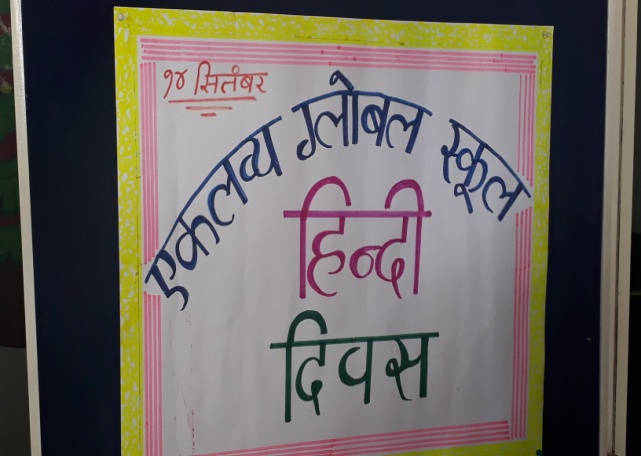 १४ सितंबर
एकलव्य ग्लोबल स्कूल
हिन्दी
दिवस